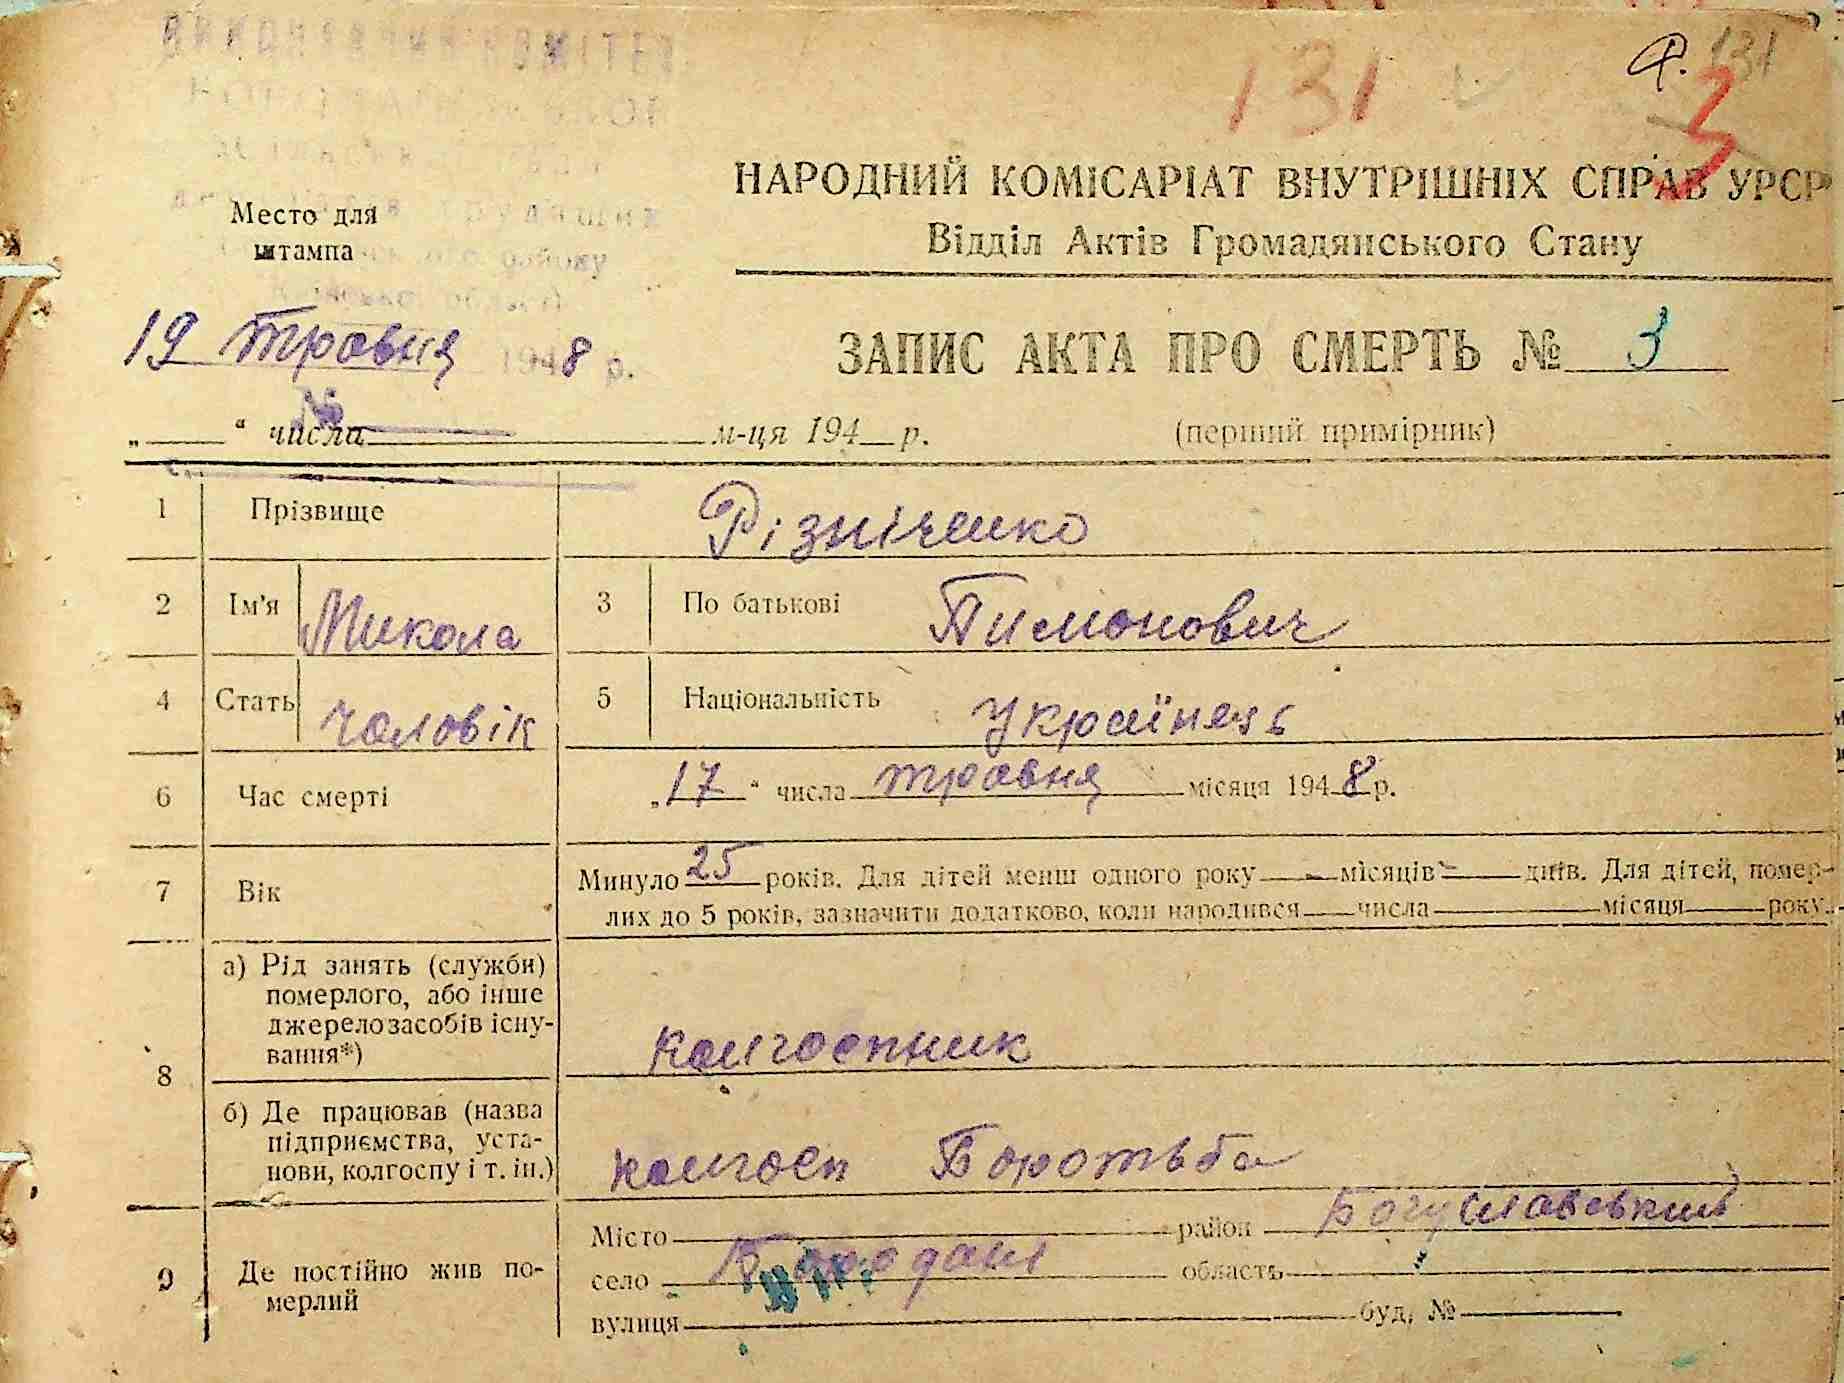 ВИКОНАВЧИЙ КОМІТЕТ
131
Ф. 131
3
НАРОДНИЙ КОМІСАРІАТ ВНУТРІШНІХ СПРАВ УРСР
Место для
штампа
району
Відділ Актів Громадянського Стану
19 травня 1948 р.
ЗАПИС АКТА ПРО СМЕРТЬ № 3
№
„ " числа м-ця 194 р.
(перший примірник)
1 Прізвище Різніченко
2 Ім'я Микола 3 По батькові Тимонович
4 Стать чоловік 5 Національність Українець
6 Час смерті „17" числа травня місяця 1948 р.
7 Вік Минуло 25 років. Для дітей менш одного року - місяців - днів. Для дітей, помер-
лих до 5 років, зазначити додатково, коли народився числа місяця року.
8 а) Рід занять (служби)
померлого, або інше
джерело засобів існу-
вання*)
колгоспник
б) Де працював (назва
підприємства, уста-
нови, колгоспу і т. ін.)
колгосп Боротьба
9 Де постійно жив по-
мерлий
Місто район Богуславський
село область
вулиця буд. №